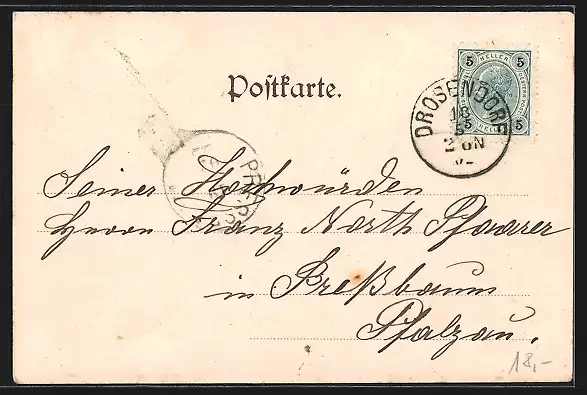 Postkarte.
5 HELLER 5
5 5
DROSENDORF
18
5
2 6N
02
PRE
Seiner Hochwürden
Herrn Franz North Pfaarer
in Preßbaum
Pfalzau.
18,-